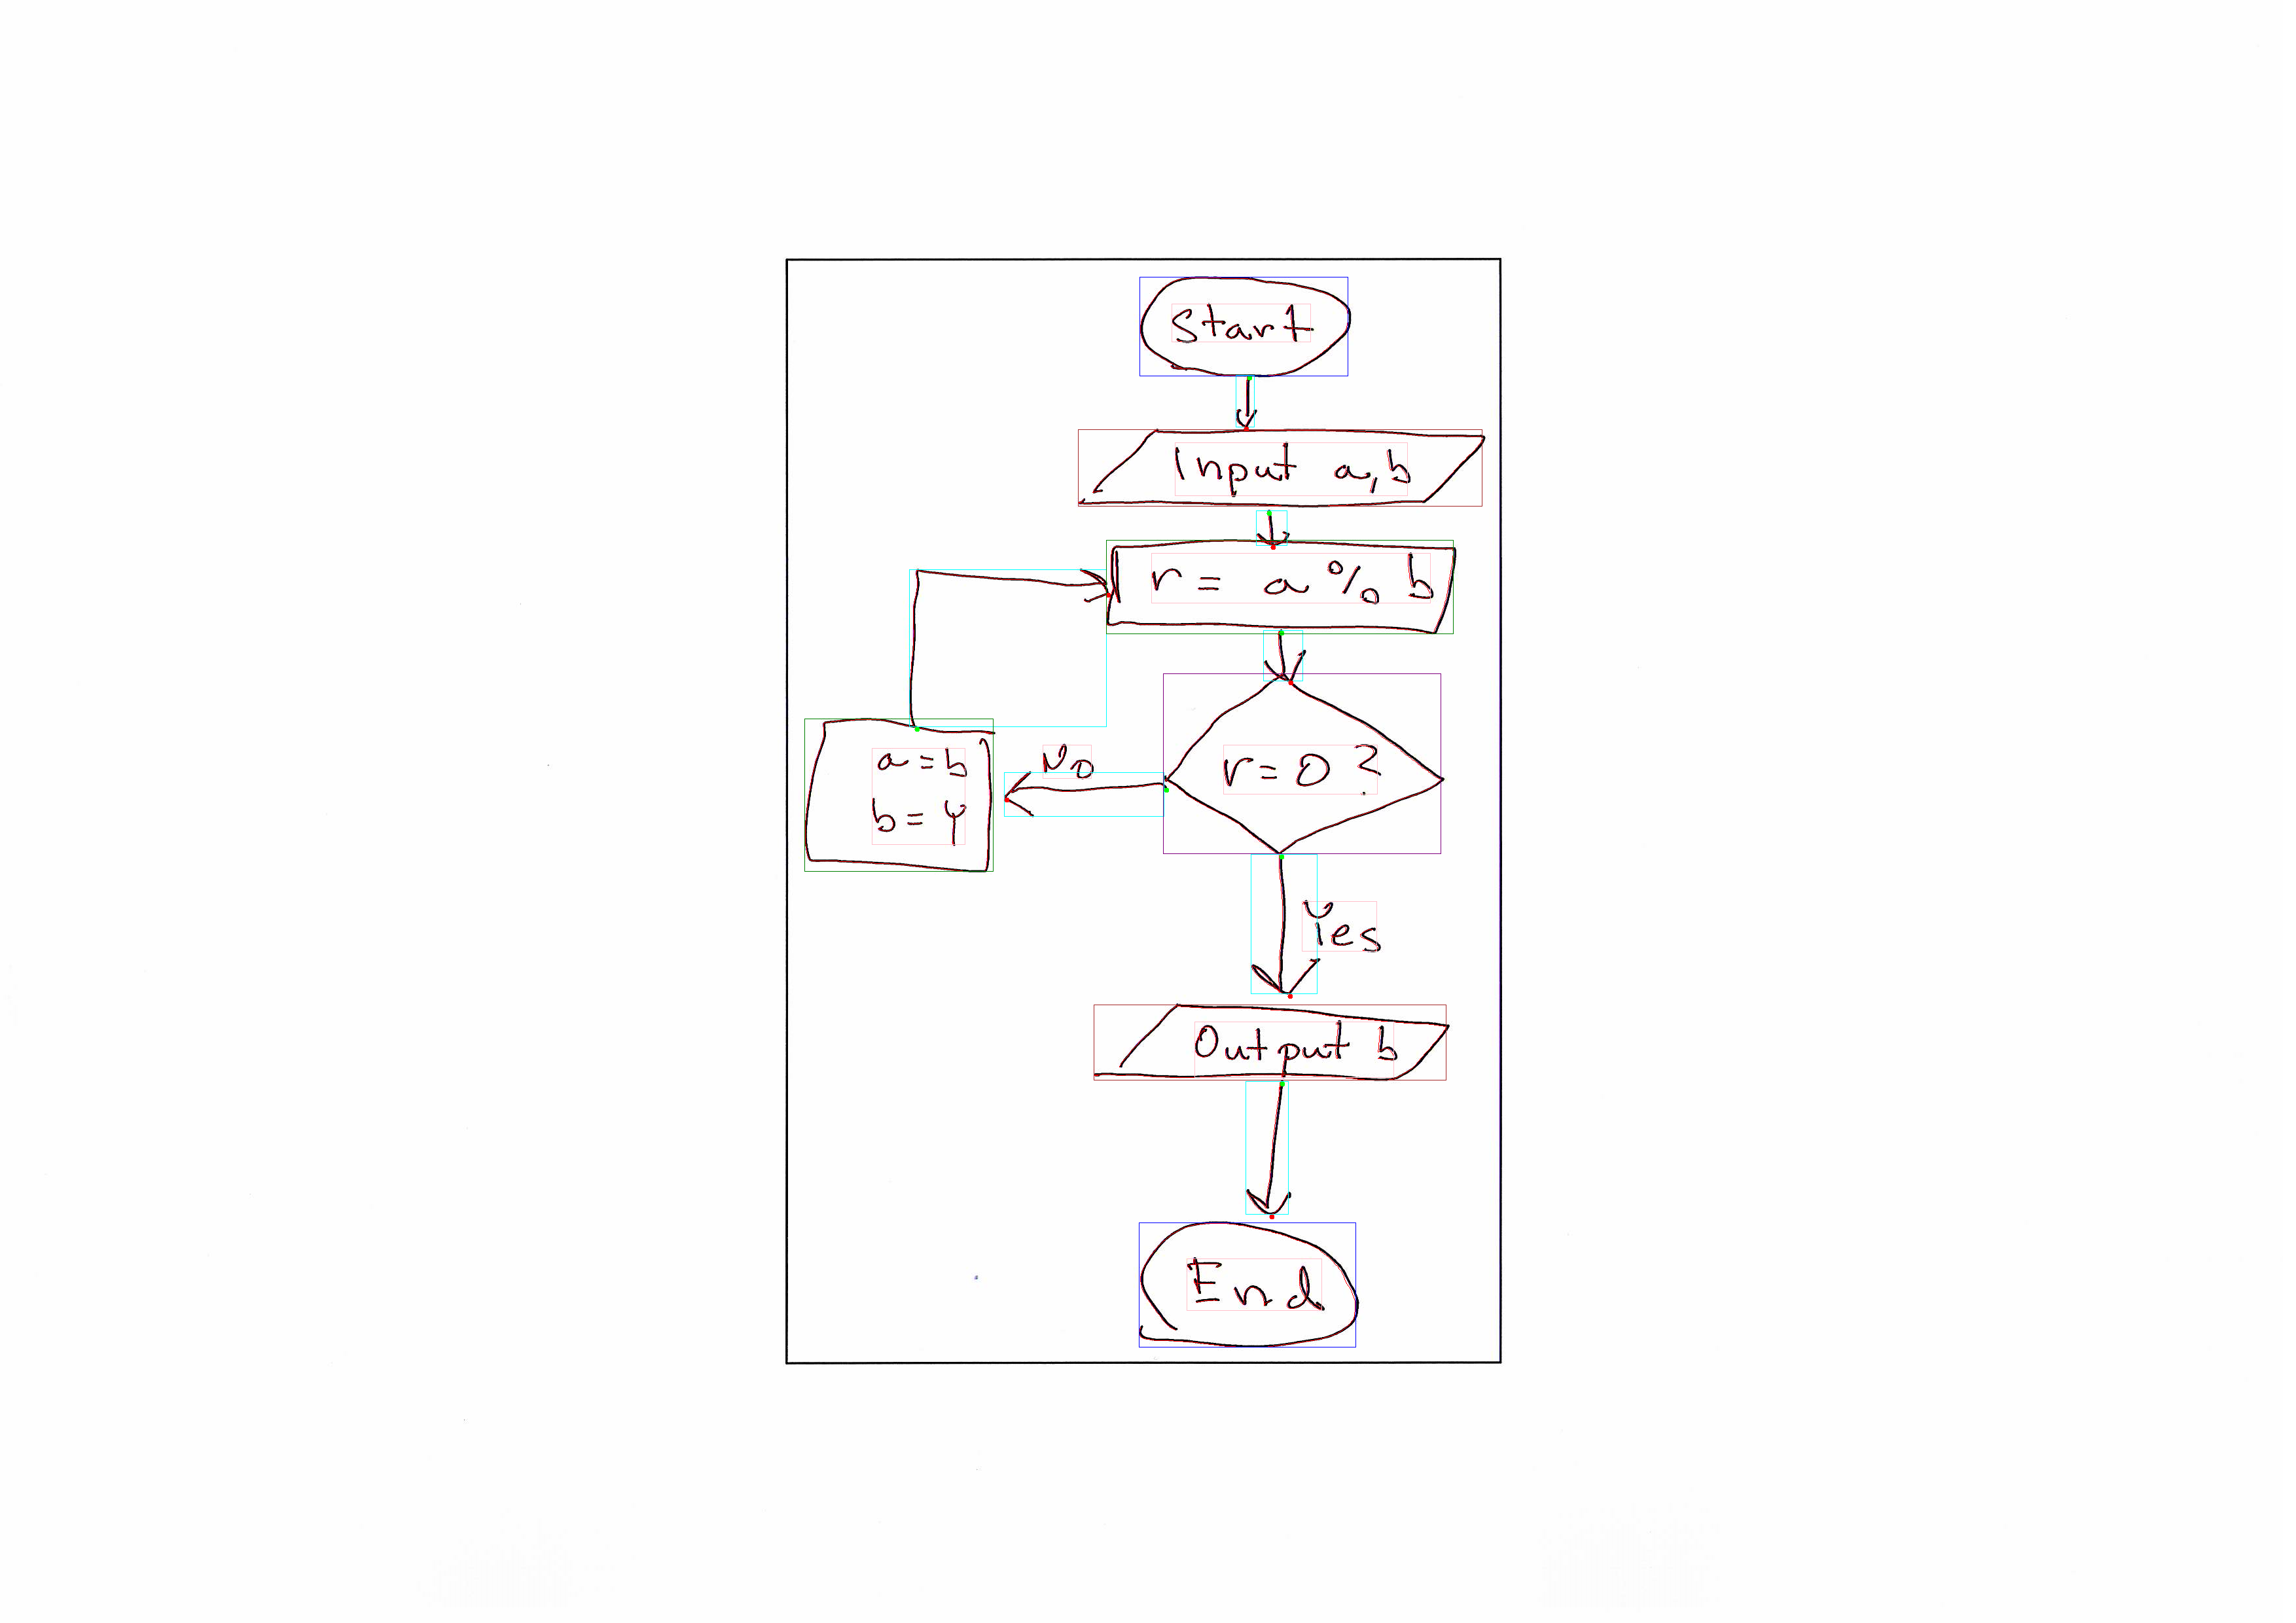 Start
Input a,b
r = a % b
r = 0 ?
No
a = b
b = 4
Yes
Output b
End